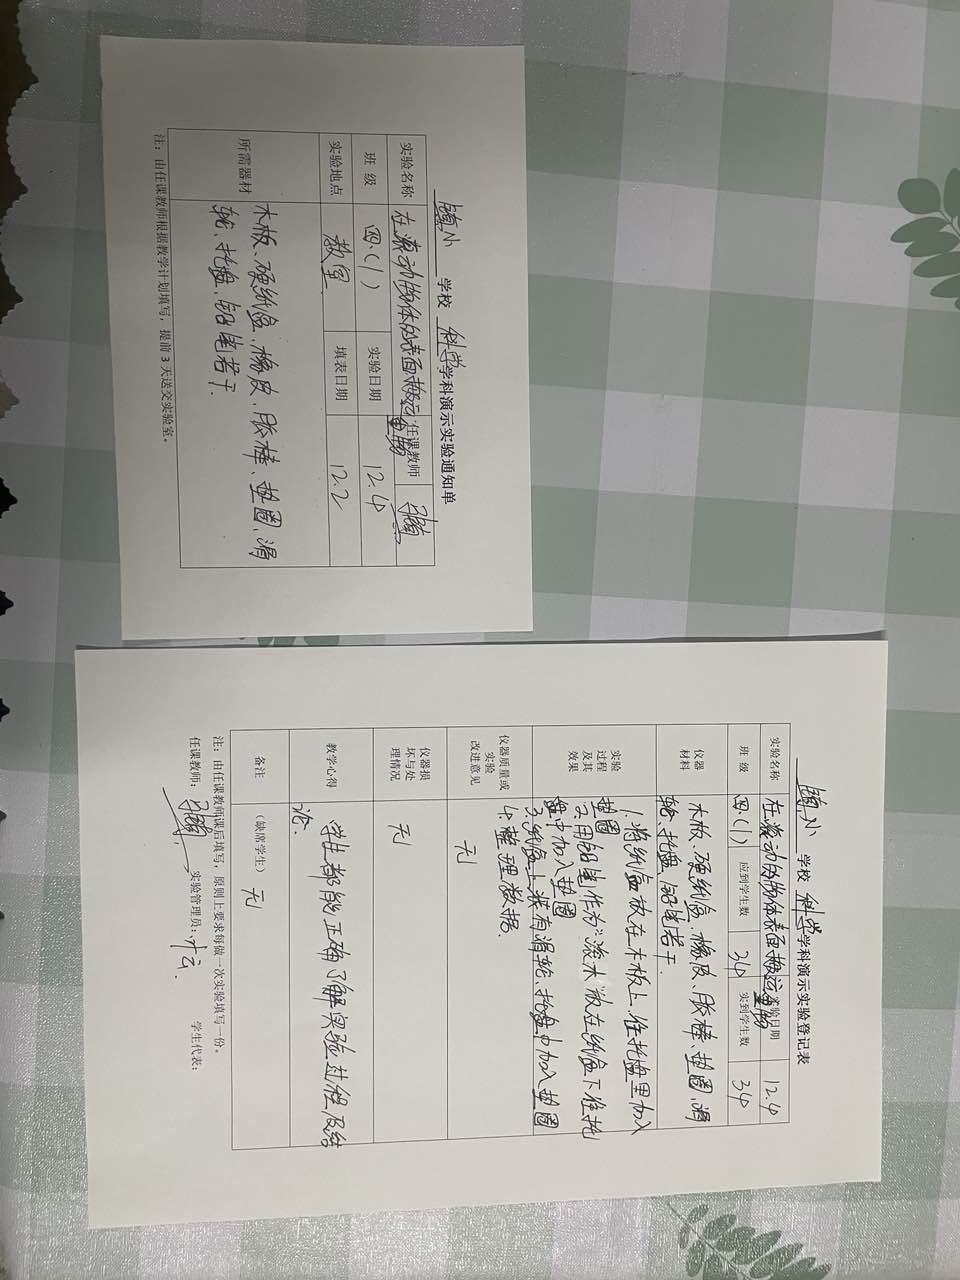 学校 科学学科演示实验通知单
实验名称 在滚动物体的表面搬运重物 任课教师
班 级 四.(1) 实验日期 12.4
实验地点 教室 填表日期 12.2
所需器材 木板、硬纸盒、橡皮、胶棒、垫圈、滑
轮、托盘、铅笔若干.
注：由任课教师根据教学计划填写，提前 3 天送交实验室。
学校 科学学科演示实验登记表
实验名称 在滚动的物体表面搬运重物 实验日期 12.4
班 级 四.(1) 应到学生数 34 实到学生数 34
仪器
材料
木板、硬纸盒、橡皮、胶棒、垫圈、滑
轮、托盘、铅笔若干.
实验
过程
及其
效果
1.将纸盒放在木板上,往托盘里加入
垫圈
2.用铅笔作为"滚木"放在纸盒下往托
盘中加入垫圈
3.纸盒上装有滑轮、托盘中加入垫圈
4.整理数据.
仪器质量或
实验
改进意见
无
仪器损
坏与处
理情况
无
教学心得
学生都能正确了解实验过程及结
论.
备注 （缺席学生） 无
注：由任课教师课后填写，原则上要求每做一次实验填写一份。
任课教师： 实验管理员： 学生代表：